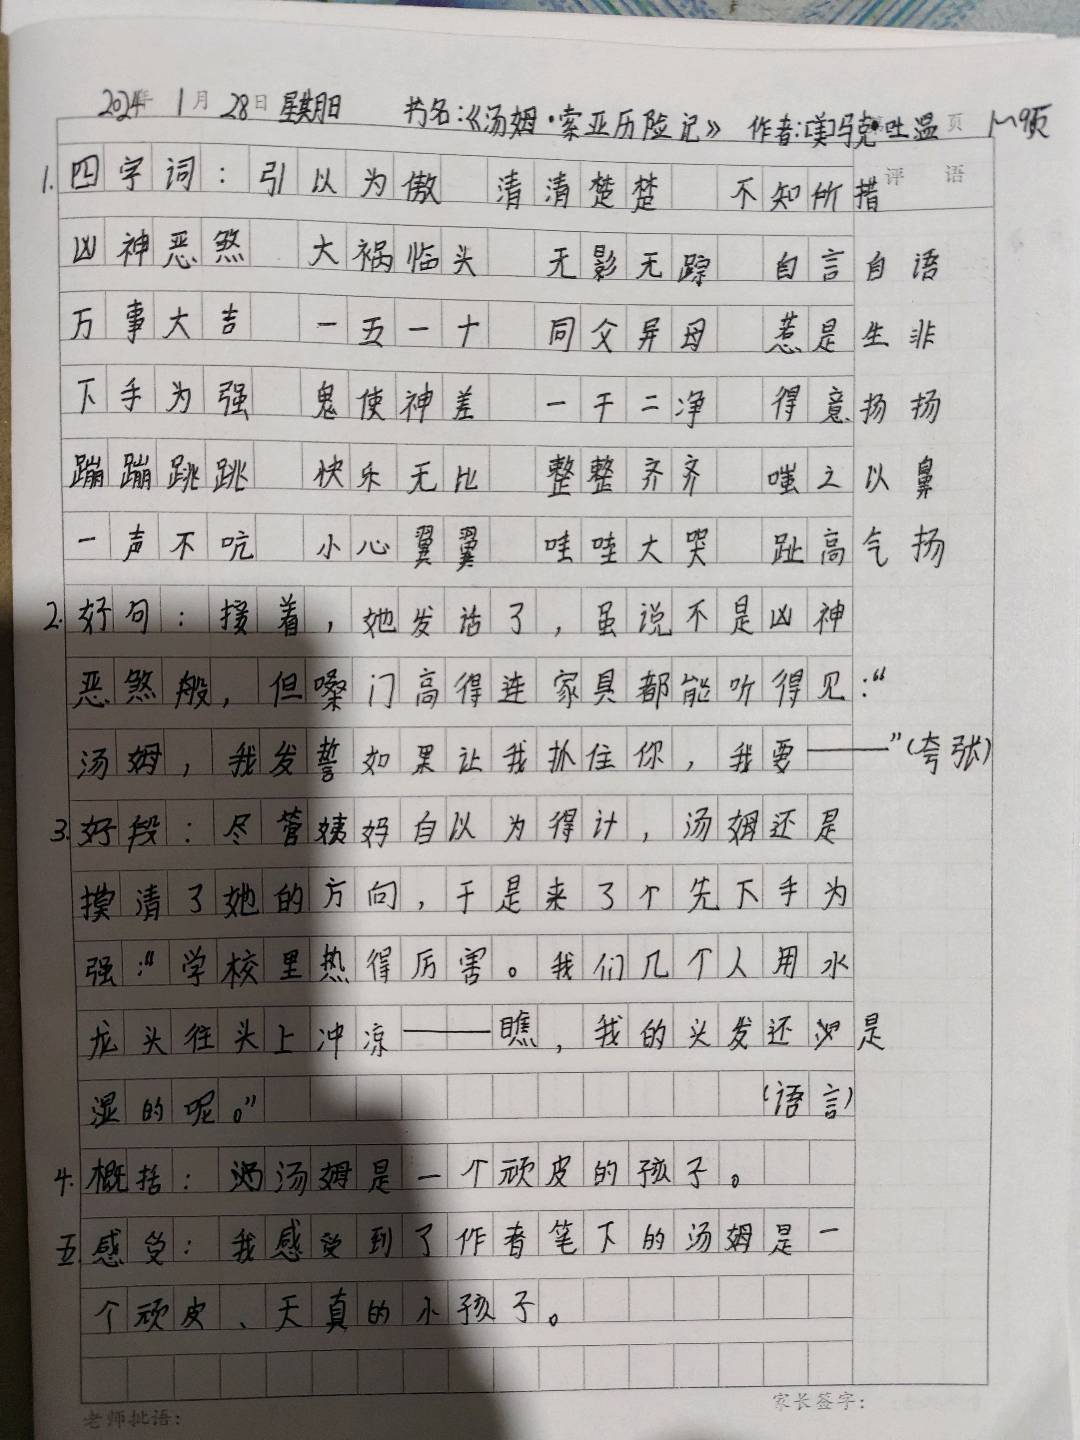 2024年1月28日 星期日 书名：《汤姆·索亚历险记》 作者：[美]马克·吐温 页 1~9页
评语
1. 四字词：引以为傲 清清楚楚 不知所措
凶神恶煞 大祸临头 无影无踪 自言自语
万事大吉 一五一十 同父异母 惹是生非
下手为强 鬼使神差 一干二净 得意扬扬
蹦蹦跳跳 快乐无比 整整齐齐 嗤之以鼻
一声不吭 小心翼翼 哇哇大哭 趾高气扬
2. 好句：接着，她发话了，虽说不是凶神
恶煞般，但嗓门高得连家具都能听得见：“
汤姆，我发誓如果让我抓住你，我要——”（夸张）
3. 好段：尽管姨妈自以为得计，汤姆还是
摸清了她的方向，于是来了个先下手为
强：“学校里热得厉害。我们几个人用水
龙头往头上冲凉——瞧，我的头发还是
湿的呢。” （语言）
4. 概括：汤姆是一个顽皮的孩子。
五. 感受：我感受到了作者笔下的汤姆是一
个顽皮、天真的小孩子。
老师批语： 家长签字：